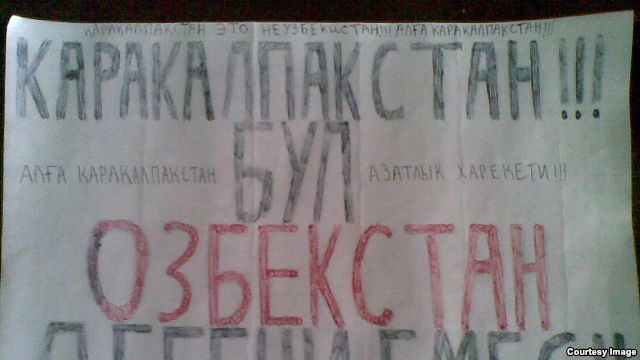 КАРАКАЛПАКСТАН ЭТО НЕУЗБЕКИСТАН!!! АЛҒА КАРАКАЛПАКСТАН!!!
КАРАКАЛПАКСТАН!!!
БУЛ
АЛҒА ҚАРАҚАЛПАҚСТАН АЗАТЛЫК ХАРЕКЕТИ!!!
ОЗБЕКСТАН
Courtesy Image